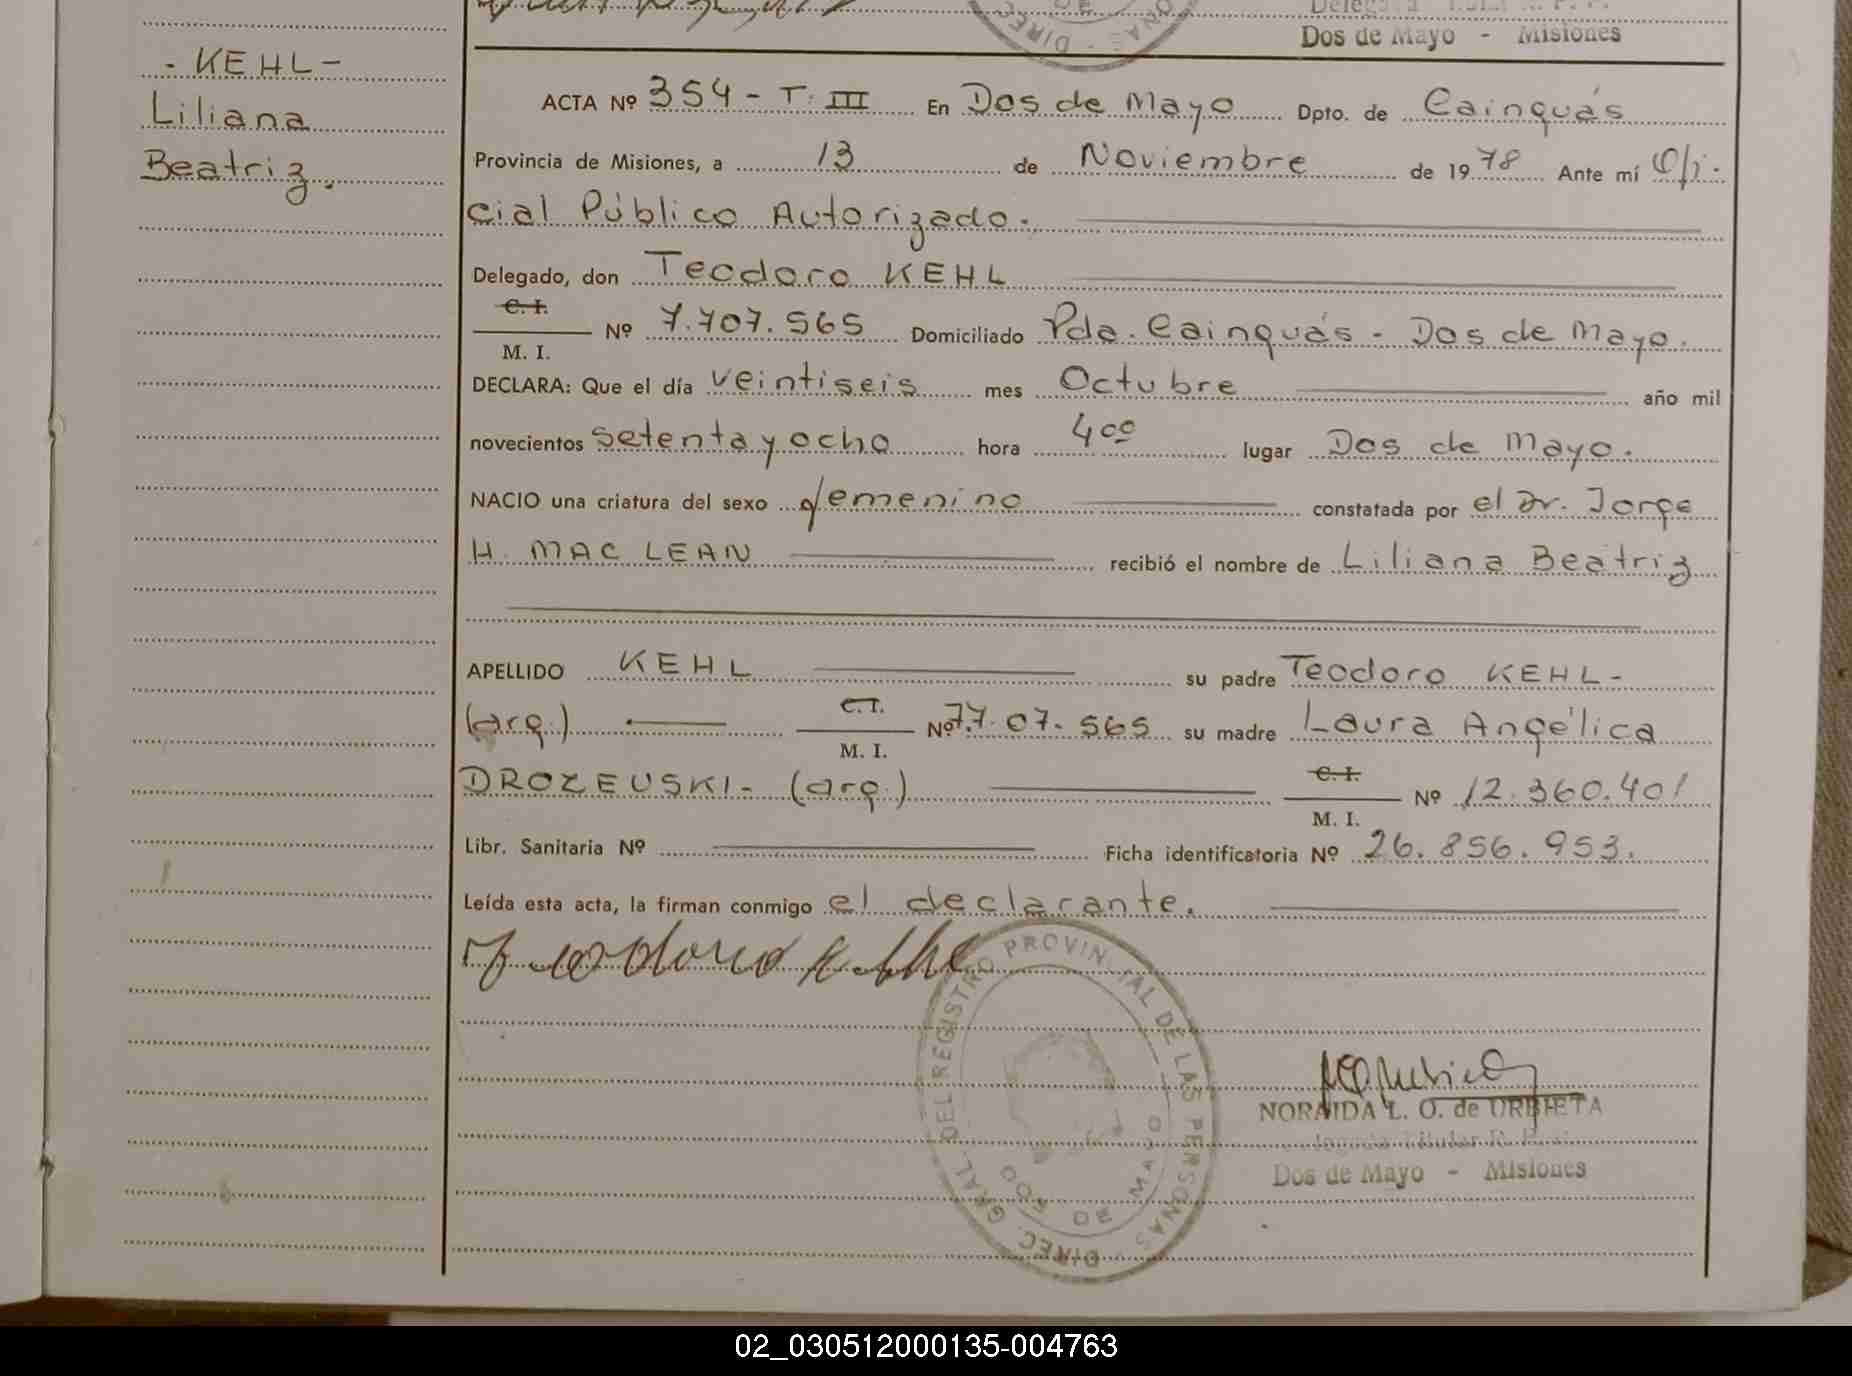 Dos de Mayo - Misiones
- KEHL -
Liliana
Beatriz.
ACTA Nº 354 - T. III En Dos de Mayo Dpto. de Cainguás
Provincia de Misiones, a 13 de Noviembre de 1978 Ante mí Ofi-
cial Público Autorizado.
Delegado, don Teodoro KEHL
C. I.
Nº 7.707.565 Domiciliado Pda. Cainguás - Dos de Mayo.
M. I.
DECLARA: Que el día veintiseis mes Octubre año mil
novecientos setenta y ocho hora 4 oo lugar Dos de Mayo.
NACIO una criatura del sexo femenino constatada por el Dr. Jorge
H. MAC LEAN recibió el nombre de Liliana Beatriz
APELLIDO KEHL su padre Teodoro KEHL -
(arg.) C. I. Nº 7.707.565 su madre Laura Angélica
M. I.
DROZEUSKI - (arg.) C. I. Nº 12.360.401
M. I.
Libr. Sanitaria Nº Ficha identificatoria Nº 26.856.953.
Leída esta acta, la firman conmigo el declarante.
DIREC. GRAL. DEL REGISTRO PROVINCIAL DE LAS PERSONAS
DOS DE MAYO
NORAIDA L. O. de URBIETA
Dos de Mayo - Misiones
02_030512000135-004763